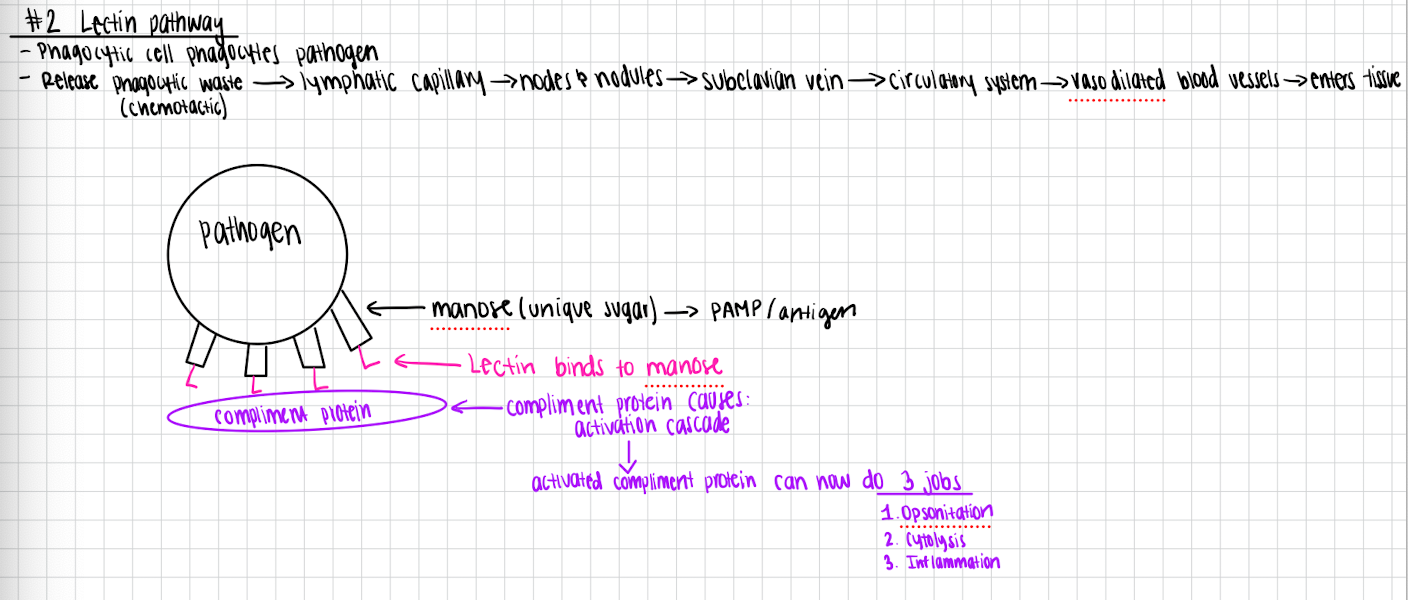 #2 Lectin pathway
- Phagocytic cell phagocytes pathogen
- Release phagocytic waste → lymphatic capillary → nodes & nodules → subclavian vein → circulatory system → vaso dilated blood vessels → enters tissue
(chemotactic)
pathogen
← manose (unique sugar) → PAMP/antigen
← Lectin binds to manose
L L L L
compliment protein
← compliment protein causes:
activation cascade
↓
activated compliment protein can now do 3 jobs
1. Opsonitation
2. Cytolysis
3. Inflammation